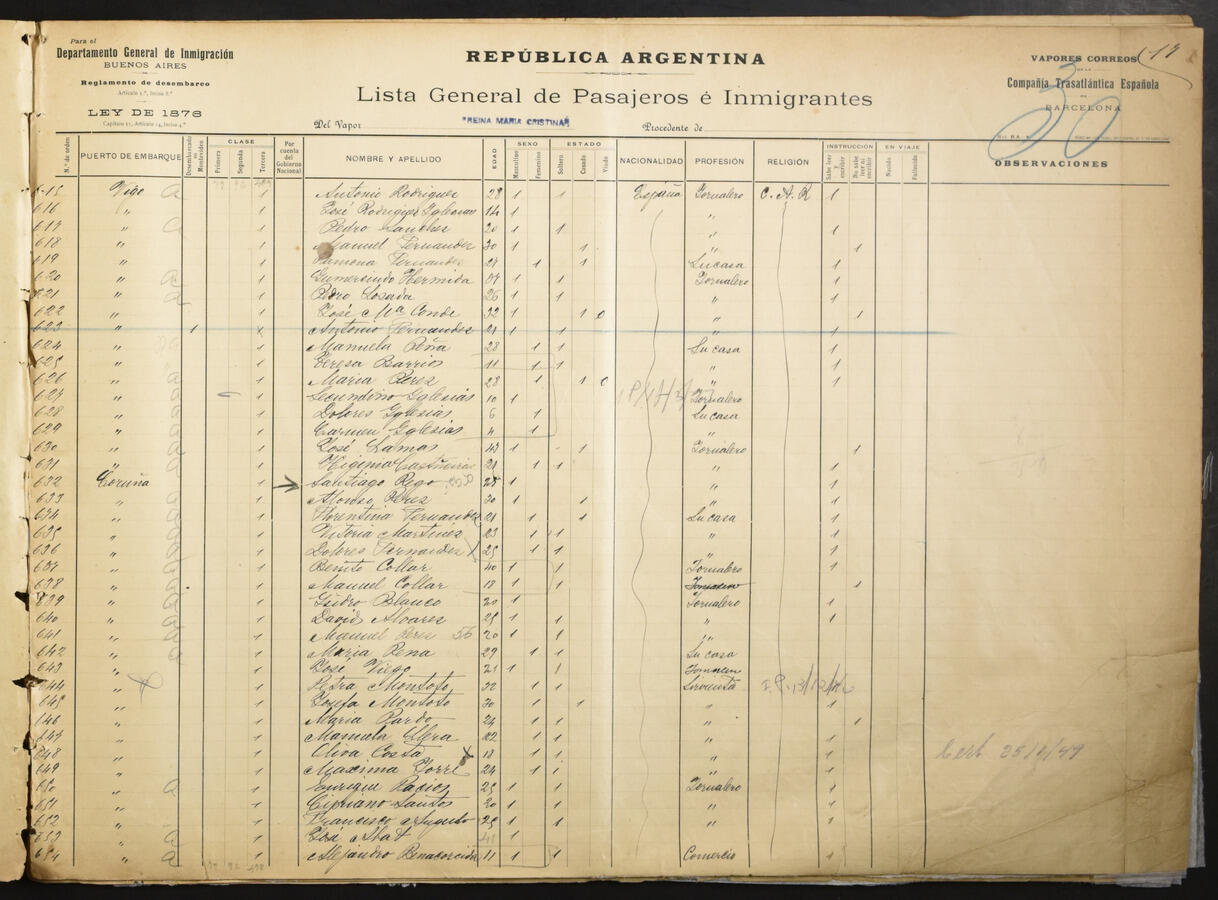 Para el
Departamento General de Inmigración
BUENOS AIRES
Reglamento de desembarco
Artículo 1.º, Inciso 8.º
LEY DE 1876
REPÚBLICA ARGENTINA
Lista General de Pasajeros é Inmigrantes
Del Vapor "REINA MARIA CRISTINA" Procedente de
VAPORES CORREOS
Compañía Trasatlántica Española
BARCELONA
17
30
N.º de orden PUERTO DE EMBARQUE Desembarcado Montevideo CLASE Primera Segunda Tercera Por cuenta del Gobierno Nacional NOMBRE Y APELLIDO EDAD SEXO Masculino Femenino ESTADO Soltero Casado Viudo NACIONALIDAD PROFESIÓN RELIGIÓN INSTRUCCIÓN Sabe leer y escribir No sabe leer ni escribir EN VIAJE Nacido Fallecido OBSERVACIONES
615 Vigo a 1 Antonio Rodriguez 28 1 España Jornalero C. A. R 1
616 " 1 José Rodriguez Iglesias 14 1 "
617 " a 1 Pedro Sanchez 20 1 1 " 1
618 " 1 Manuel Fernandez 30 1 1 " 1
619 " 1 Ramona Fernandez 1 1 Su casa 1
620 " a 1 Gumersindo Hermida 1 1 Jornalero 1
621 " a 1 Pedro Losada 26 1 1 " 1
622 " 1 José Mª Conde 32 1 1 " 1
623 " 1 1 Antonio Fernandez 21 1 1 " 1
624 " 1 Manuela Peña 28 1 1 Su casa 1
625 " 1 Teresa Barrios 11 1 1 " 1
626 " a 1 Maria Perez 28 1 1 " 1
627 " 1 Secundino Iglesias 10 1 Jornalero
628 " 1 Dolores Iglesias 6 1 Su casa
629 " 1 Carmen Iglesias 4 1 "
630 " 1 José Lamas 43 1 1 Jornalero 1
631 " 1 Higinia Castiñeiras 21 1 1 " 1
632 Coruña 1 Santiago Rego 25 1 " 1
633 " 1 Alonso Perez 30 1 1 " 1
634 " 1 Florentina Fernandez 21 1 1 Su casa 1
635 " 1 Vitoria Martinez 23 1 1 " 1
636 " 1 Dolores Fernandez 25 1 1 " 1
637 " 1 Benito Collar 40 1 1 Jornalero 1
638 " 1 Manuel Collar 18 1 1 1
639 " 1 Isidro Blanco 20 1 Jornalero 1
640 " 1 David Alvarez 25 1 1 " 1
641 " 1 Manuel Perez 56 20 1 1 "
642 " 1 Maria Pena 29 1 1 Su casa 1
643 " 1 José Viego 21 1 1 1
644 " 1 Petra Montoto 32 1 1 Sirvienta
645 " 1 Josefa Montoto 30 1 1 " 1
646 " 1 Maria Pardo 24 1 1 1
647 " 1 Manuela 22 1 1 " 1
648 " 1 Oliva Costa 18 1 1 " 1 Cert.
649 " 1 Maxima Torre 24 1 1 " 1
650 " a 1 Enrique 25 1 1 Jornalero 1
651 " 1 Cipriano Santos 20 1 1 " 1
652 " 1 Francisco Augusto 25 1 1 " 1
653 " a 1 José Abat 1
654 " a 1 Alejandro 11 1 1 Comercio 1